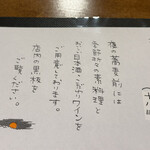 種の蕎麦前には
季節折々の素料理と
だし日本酒、こだわりワインを
ご用意しております。
店内の黒板を
ご覧ください。